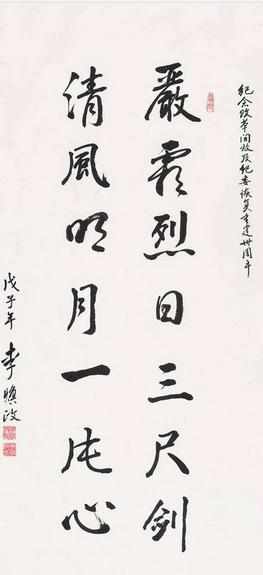 纪念改革开放及纪委恢复重建卅周年
嚴霜烈日三尺剑
清風明月一片心
戊子年